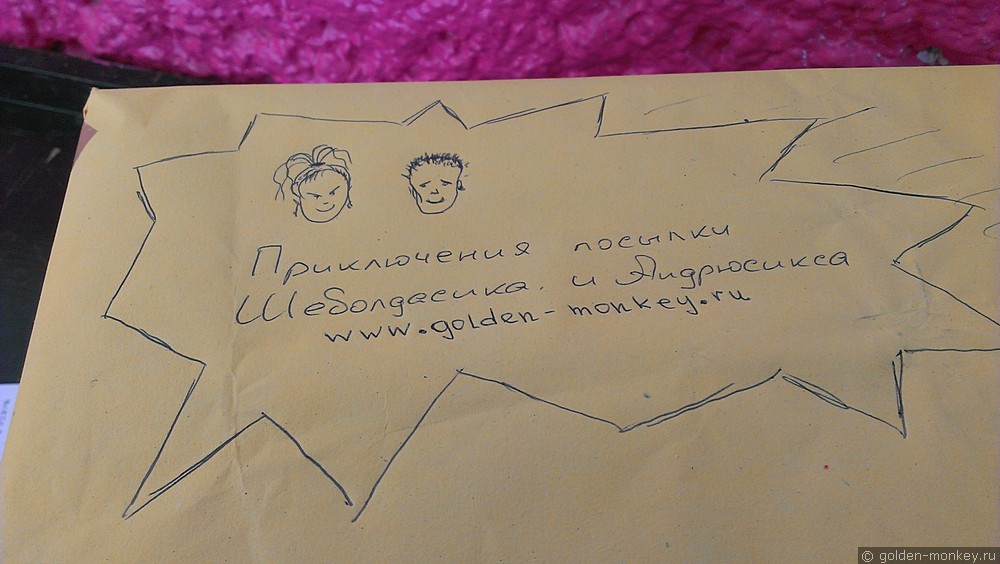 Приключения посылки
Шеболдасика и Яндрюсикса
www.golden-monkey.ru
© golden-monkey.ru